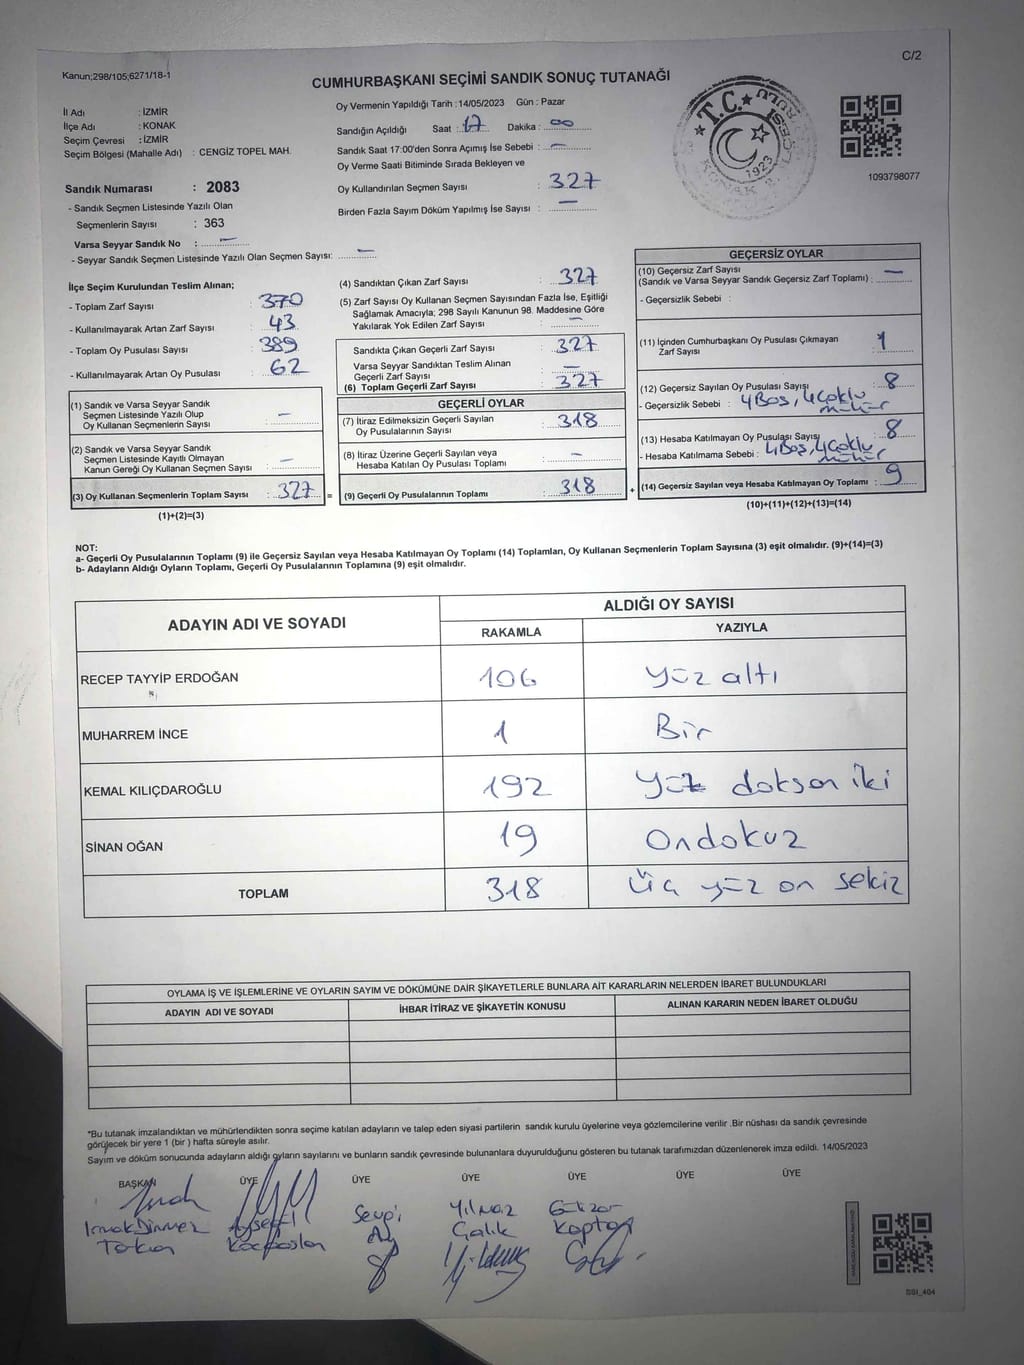 Kanun;298/105;6271/18-1
C/2
CUMHURBAŞKANI SEÇİMİ SANDIK SONUÇ TUTANAĞI
İl Adı : İZMİR
İlçe Adı : KONAK
Seçim Çevresi : İZMİR
Seçim Bölgesi (Mahalle Adı) : CENGİZ TOPEL MAH.
Sandık Numarası : 2083
- Sandık Seçmen Listesinde Yazılı Olan
Seçmenlerin Sayısı : 363
Varsa Seyyar Sandık No : —
- Seyyar Sandık Seçmen Listesinde Yazılı Olan Seçmen Sayısı: —
Oy Vermenin Yapıldığı Tarih : 14/05/2023 Gün : Pazar
Sandığın Açıldığı Saat : 17 Dakika : 00
Sandık Saat 17:00'den Sonra Açımış İse Sebebi : —
Oy Verme Saati Bitiminde Sırada Bekleyen ve
Oy Kullandırılan Seçmen Sayısı : 327
Birden Fazla Sayım Döküm Yapılmış İse Sayısı : —
T.C.
1923
1093798077
İlçe Seçim Kurulundan Teslim Alınan;
- Toplam Zarf Sayısı : 370
- Kullanılmayarak Artan Zarf Sayısı : 43
- Toplam Oy Pusulası Sayısı : 389
- Kullanılmayarak Artan Oy Pusulası : 62
(1) Sandık ve Varsa Seyyar Sandık
Seçmen Listesinde Yazılı Olup
Oy Kullanan Seçmenlerin Sayısı : —
(2) Sandık ve Varsa Seyyar Sandık
Seçmen Listesinde Kayıtlı Olmayan
Kanun Gereği Oy Kullanan Seçmen Sayısı : —
(3) Oy Kullanan Seçmenlerin Toplam Sayısı : 327 =
(1)+(2)=(3)
(4) Sandıktan Çıkan Zarf Sayısı : 327
(5) Zarf Sayısı Oy Kullanan Seçmen Sayısından Fazla İse, Eşitliği
Sağlamak Amacıyla; 298 Sayılı Kanunun 98. Maddesine Göre
Yakılarak Yok Edilen Zarf Sayısı : —
Sandıkta Çıkan Geçerli Zarf Sayısı : 327
Varsa Seyyar Sandıktan Teslim Alınan
Geçerli Zarf Sayısı : —
(6) Toplam Geçerli Zarf Sayısı : 327
GEÇERLİ OYLAR
(7) İtiraz Edilmeksizin Geçerli Sayılan
Oy Pusulalarının Sayısı : 318
(8) İtiraz Üzerine Geçerli Sayılan veya
Hesaba Katılan Oy Pusulası Toplamı : —
(9) Geçerli Oy Pusulalarının Toplamı : 318 +
GEÇERSİZ OYLAR
(10) Geçersiz Zarf Sayısı
(Sandık ve Varsa Seyyar Sandık Geçersiz Zarf Toplamı) : —
- Geçersizlik Sebebi :
(11) İçinden Cumhurbaşkanı Oy Pusulası Çıkmayan
Zarf Sayısı : 1
(12) Geçersiz Sayılan Oy Pusulası Sayısı : 8
- Geçersizlik Sebebi : 4 Boş, 4 çoklu
mühür
(13) Hesaba Katılmayan Oy Pusulası Sayısı : 8
- Hesaba Katılmama Sebebi : 4 Boş, 4 çoklu
mühür
(14) Geçersiz Sayılan veya Hesaba Katılmayan Oy Toplamı : 9
(10)+(11)+(12)+(13)=(14)
NOT:
a- Geçerli Oy Pusulalarının Toplamı (9) ile Geçersiz Sayılan veya Hesaba Katılmayan Oy Toplamı (14) Toplamları, Oy Kullanan Seçmenlerin Toplam Sayısına (3) eşit olmalıdır. (9)+(14)=(3)
b- Adayların Aldığı Oyların Toplamı, Geçerli Oy Pusulalarının Toplamına (9) eşit olmalıdır.
ADAYIN ADI VE SOYADI
ALDIĞI OY SAYISI
RAKAMLA YAZIYLA
RECEP TAYYİP ERDOĞAN 106 yüz altı
MUHARREM İNCE 1 Bir
KEMAL KILIÇDAROĞLU 192 yüz doksan iki
SİNAN OĞAN 19 Ondokuz
TOPLAM 318 üç yüz on sekiz
OYLAMA İŞ VE İŞLEMLERİNE VE OYLARIN SAYIM VE DÖKÜMÜNE DAİR ŞİKAYETLERLE BUNLARA AİT KARARLARIN NELERDEN İBARET BULUNDUKLARI
ADAYIN ADI VE SOYADI İHBAR İTİRAZ VE ŞİKAYETİN KONUSU ALINAN KARARIN NEDEN İBARET OLDUĞU
*Bu tutanak imzalandıktan ve mühürlendikten sonra seçime katılan adayların ve talep eden siyasi partilerin sandık kurulu üyelerine veya gözlemcilerine verilir .Bir nüshası da sandık çevresinde
görülecek bir yere 1 (bir ) hafta süreyle asılır.
Sayım ve döküm sonucunda adayların aldığı oyların sayılarını ve bunların sandık çevresinde bulunanlara duyurulduğunu gösteren bu tutanak tarafımızdan düzenlenerek imza edildi. 14/05/2023
BAŞKAN ÜYE ÜYE ÜYE ÜYE ÜYE ÜYE
Sevgi
Yılmaz
Çalık
SSI_404